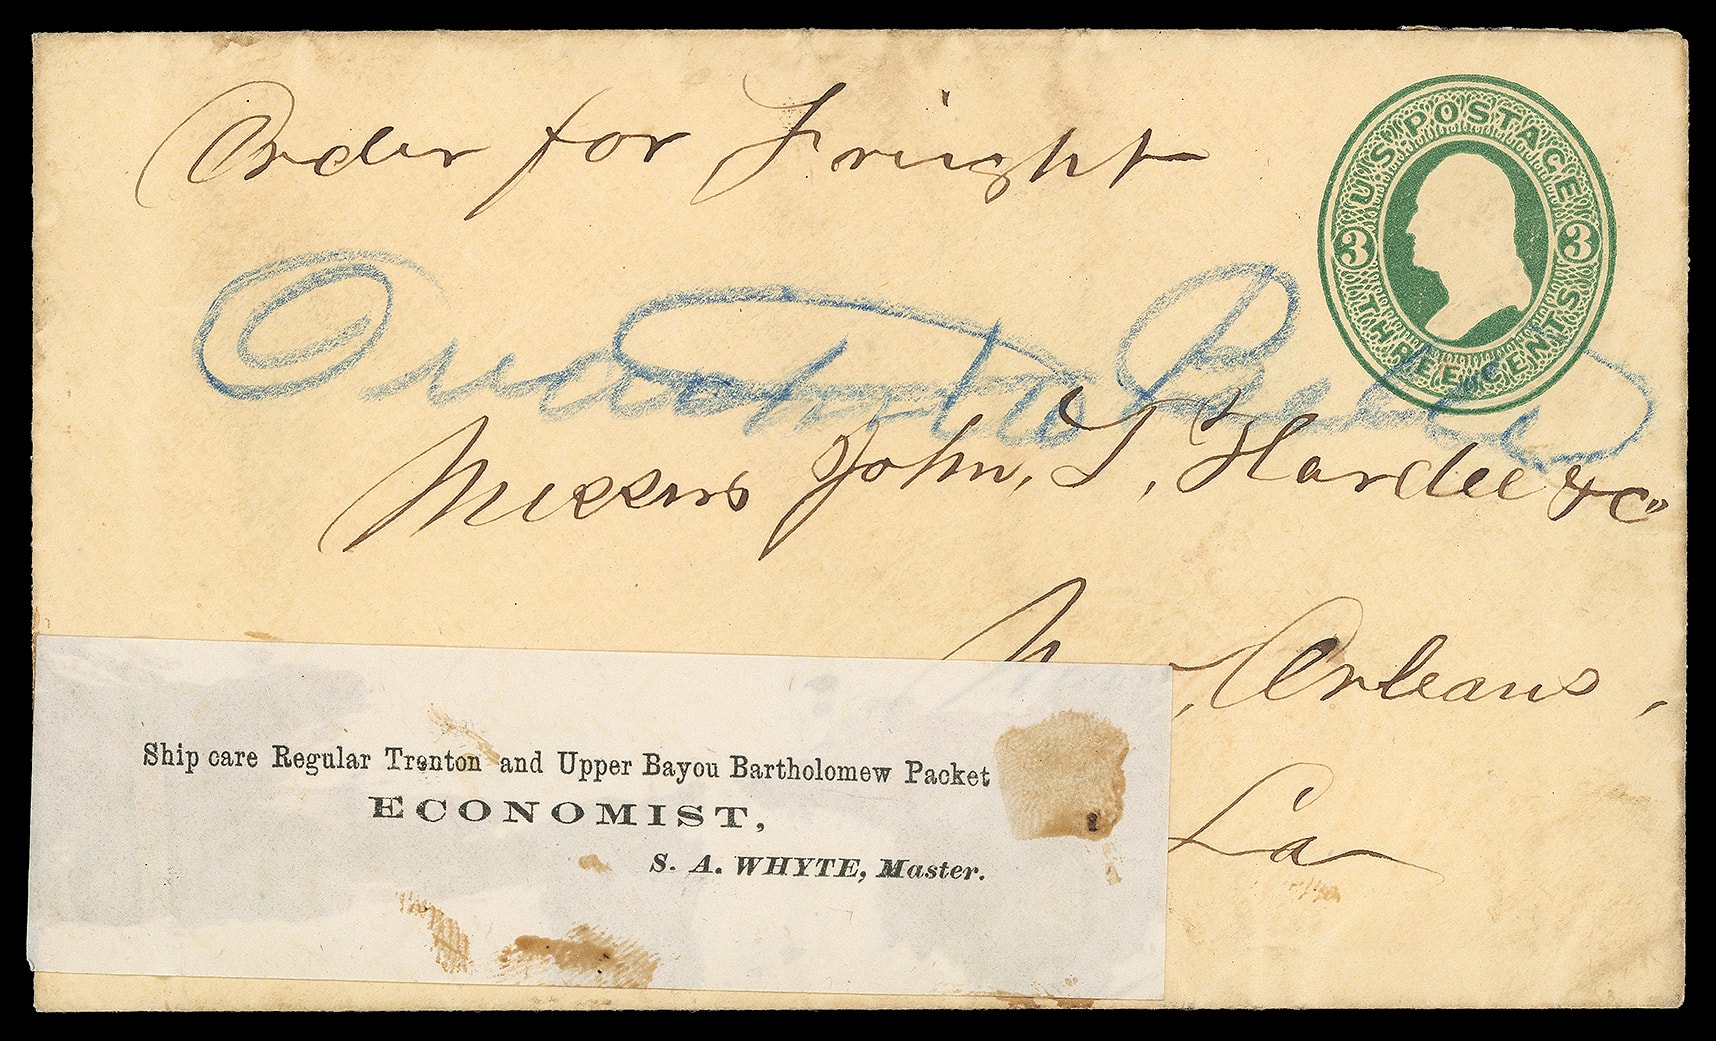 Order for Freight
U.S. POSTAGE
3 3
THREE CENTS
Ouachita Belle
Messrs John, T, Hardee & Co
Orleans,
La
Ship care Regular Trenton and Upper Bayou Bartholomew Packet
ECONOMIST,
S. A. WHYTE, Master.